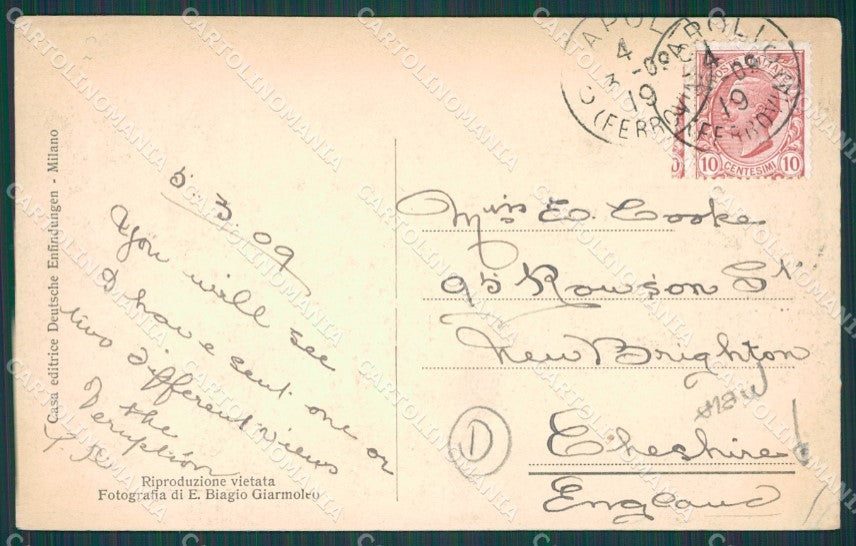 Casa editrice Deutsche Enfindungen - Milano
5 3 09
You will see
I have sent one or
two different views
the
Veruption
Riproduzione vietata
Fotografia di E. Biagio Giarmoleo
NAPOLI
4
3 - 09
19
(FERROVIA)
POSTE ITALIANE
10 CENTESIMI 10
Miss Ed. Cooke
95 Rowson St
New Brighton
Cheshire
England
D
CARTOLINOMANIA